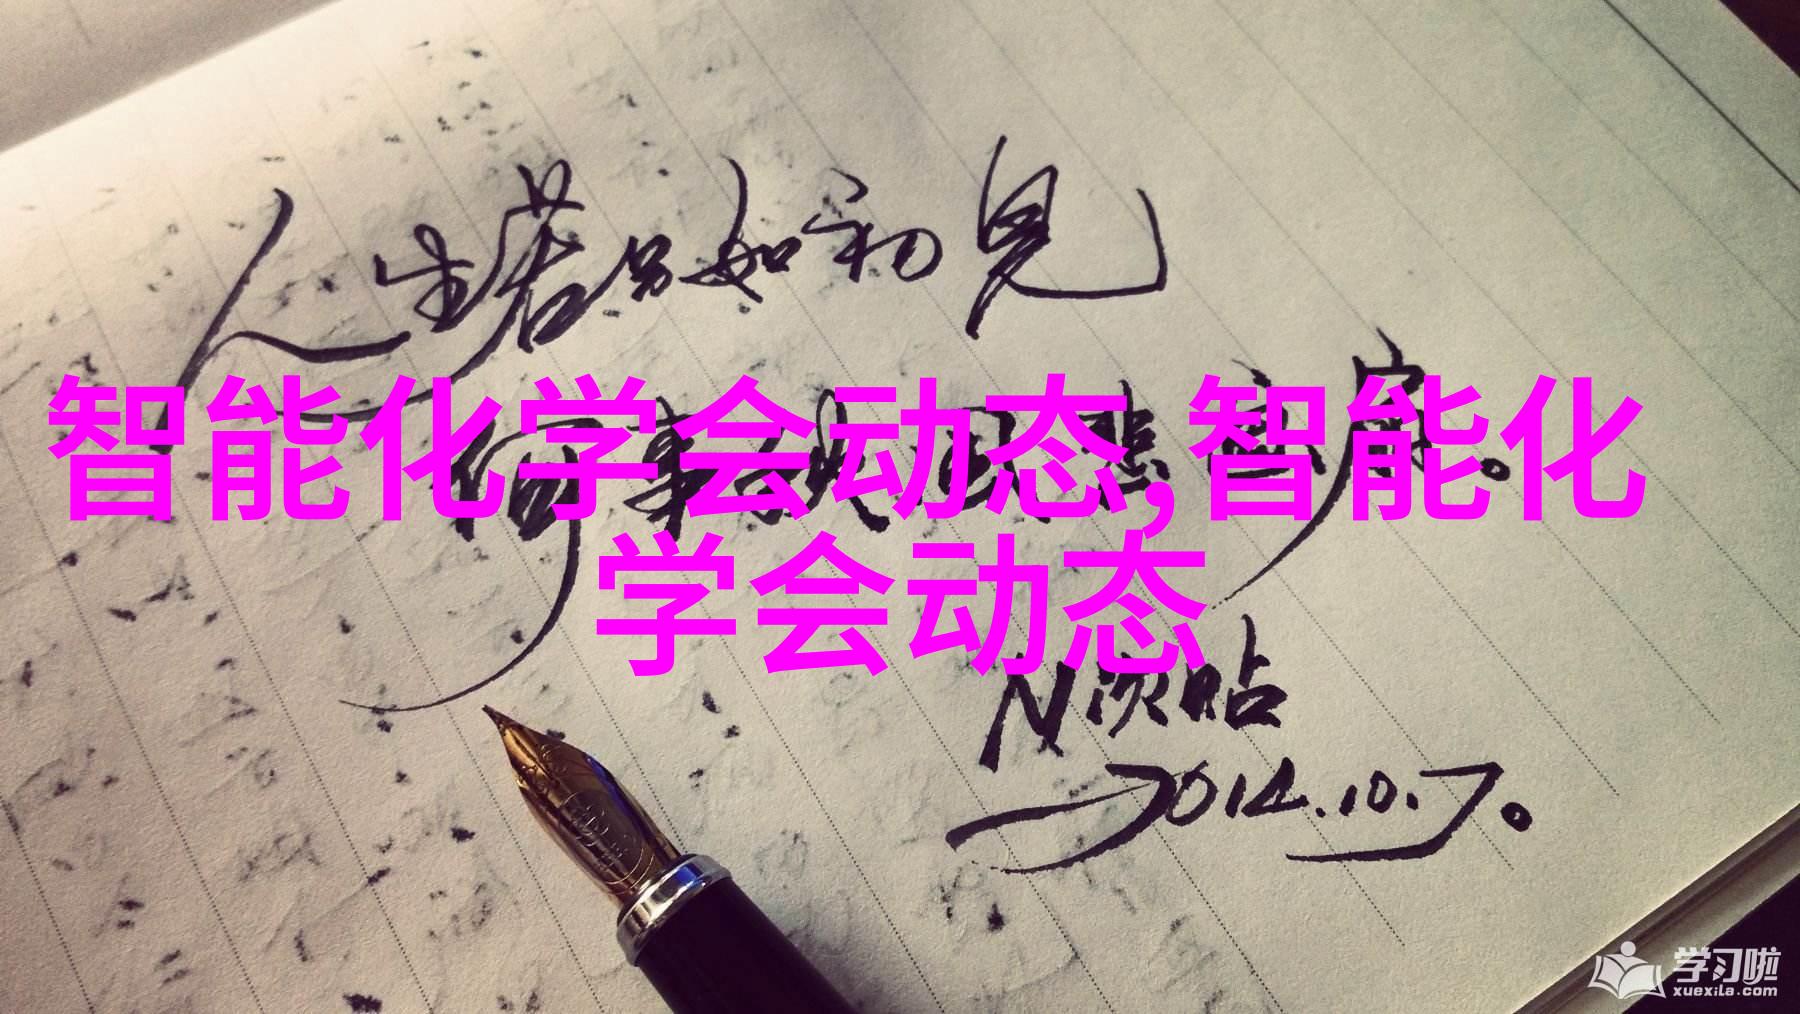 人生若只如初见
何事秋风悲画扇。
智能化学会动态,智能化
学会动态
N次贴
2014.10.7。
学习啦
xuexila.com